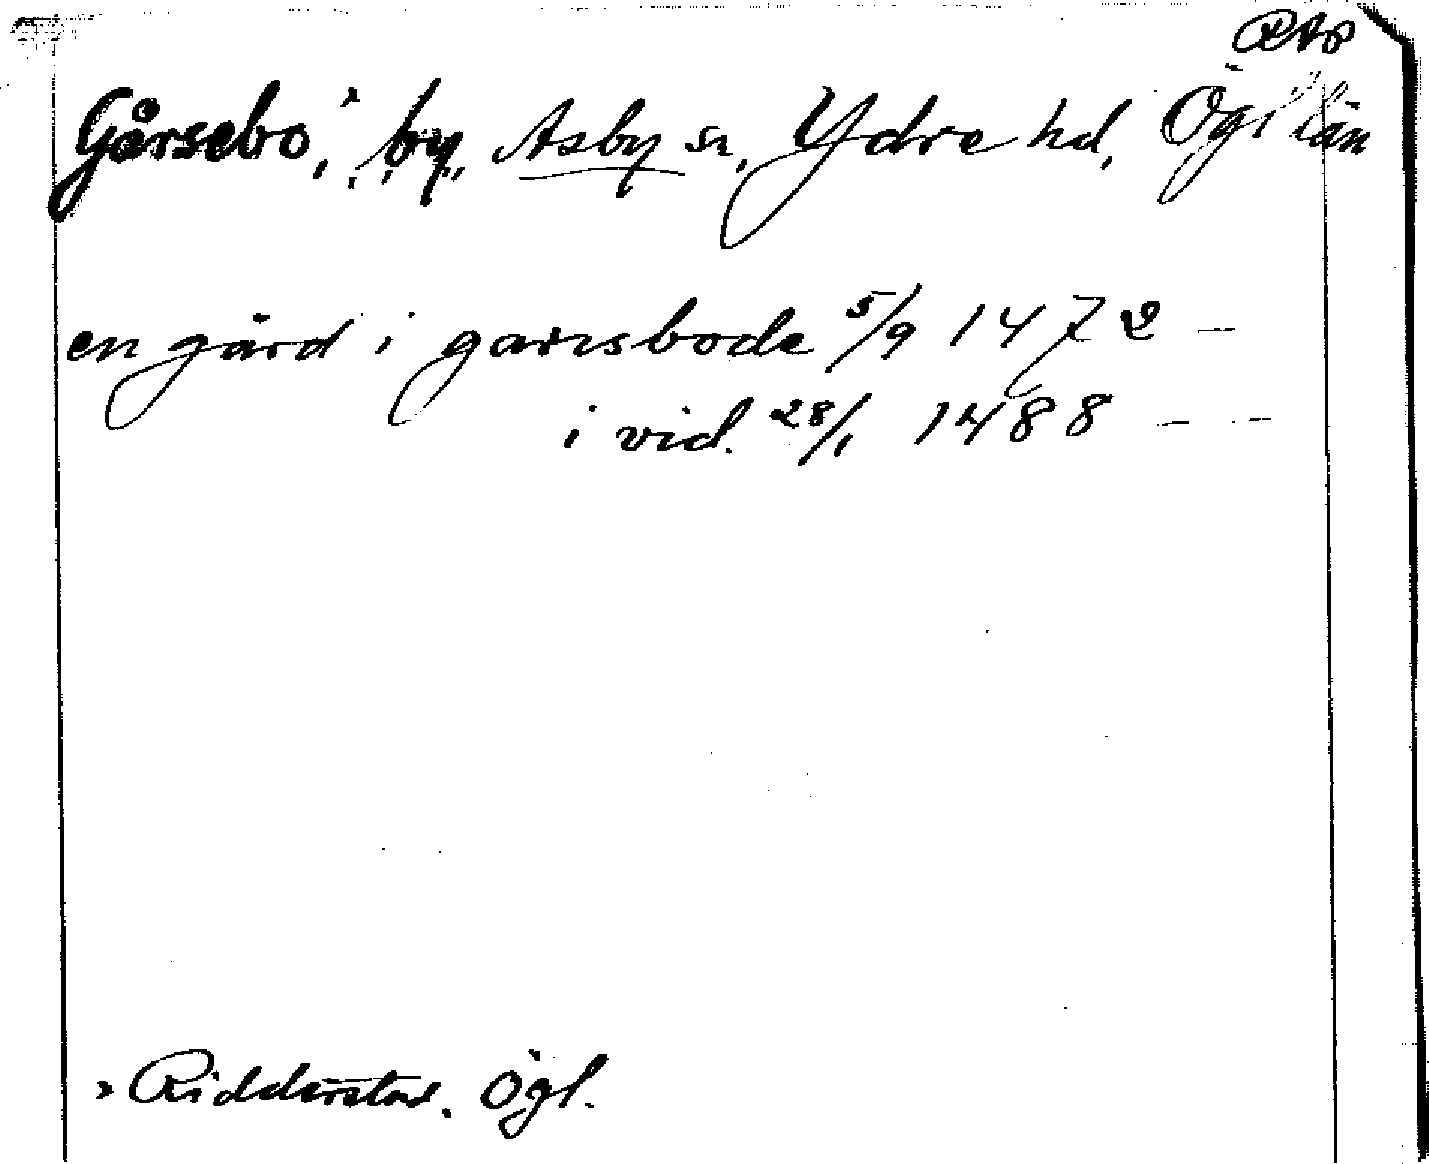 RAp
Gårsebo,ˣ by, Asby sn, Ydre hd, Ögl län
en gård i garisbode 5/9 1472 —
i vid. 28/1 1488 — —
ˣ Ridderstad. Ögl.